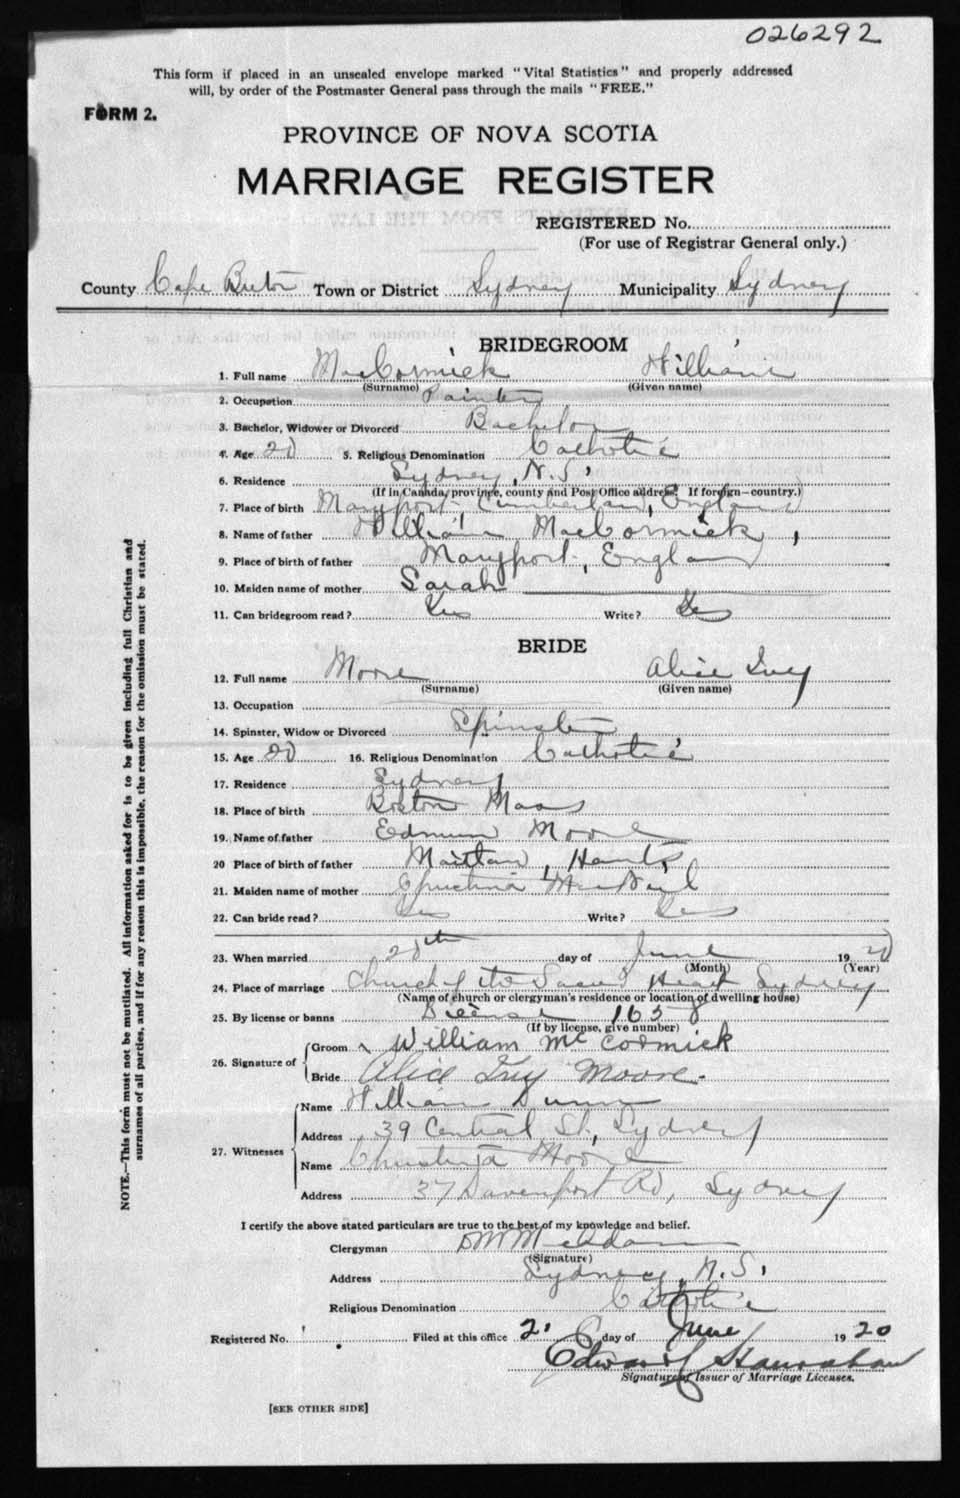 026292
This form if placed in an unsealed envelope marked "Vital Statistics" and properly addressed
will, by order of the Postmaster General pass through the mails "FREE."
FORM 2.
PROVINCE OF NOVA SCOTIA
MARRIAGE REGISTER
REGISTERED No.
(For use of Registrar General only.)
County Cape Breton Town or District Sydney Municipality Sydney
BRIDEGROOM
1. Full name MacCormick William
(Surname) (Given name)
2. Occupation Painter
3. Bachelor, Widower or Divorced Bachelor
4. Age 20 5. Religious Denomination Catholic
6. Residence Sydney, N.S.
(If in Canada, province, county and Post Office address. If foreign—country.)
7. Place of birth Maryport Cumberland, England
8. Name of father William MacCormick,
9. Place of birth of father Maryport, England
10. Maiden name of mother Sarah
11. Can bridegroom read? Yes Write? Yes
BRIDE
12. Full name Moore Alice Ivy
(Surname) (Given name)
13. Occupation
14. Spinster, Widow or Divorced Spinster
15. Age 20 16. Religious Denomination Catholic
17. Residence Sydney
18. Place of birth Boston Mass
19. Name of father Edmund Moore
20 Place of birth of father Maitland, Hants
21. Maiden name of mother Christina MacNeil
22. Can bride read? Yes Write? Yes
23. When married 20th day of June 1920
(Month) (Year)
24. Place of marriage Church of the Sacred Heart Sydney
(Name of church or clergyman's residence or location of dwelling house)
25. By license or banns License 1658
(If by license, give number)
26. Signature of Groom William McCormick
Bride Alice Ivy Moore.
27. Witnesses Name William Dunn
Address 39 Central St., Sydney
Name Christina Moore
Address 37 Davenport Rd, Sydney
I certify the above stated particulars are true to the best of my knowledge and belief.
Clergyman
(Signature)
Address Sydney, N.S.
Religious Denomination Catholic
Registered No. Filed at this office 2 day of June 1920
Edward
Signature of Issuer of Marriage Licenses.
[SEE OTHER SIDE]
NOTE.—This form must not be mutilated. All information asked for is to be given including full Christian and
surnames of all parties, and if for any reason this is impossible, the reason for the omission must be stated.